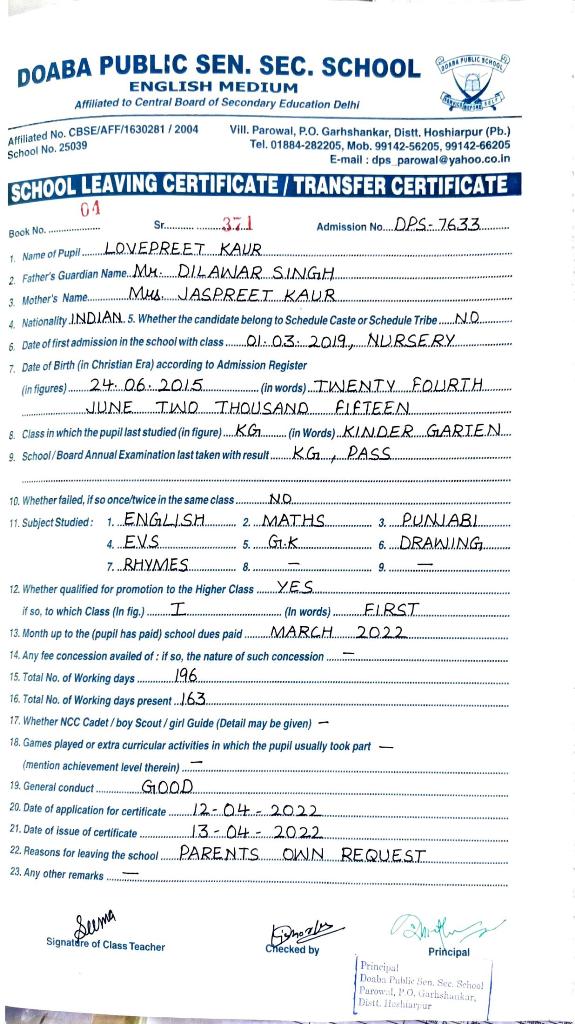 DOABA PUBLIC SEN. SEC. SCHOOL
DOABA PUBLIC SCHOOL
ENGLISH MEDIUM
Affiliated to Central Board of Secondary Education Delhi
Affiliated No. CBSE/AFF/1630281 / 2004
School No. 25039
Vill. Parowal, P.O. Garhshankar, Distt. Hoshiarpur (Pb.)
Tel. 01884-282205, Mob. 99142-56205, 99142-66205
E-mail : dps_parowal@yahoo.co.in
SCHOOL LEAVING CERTIFICATE / TRANSFER CERTIFICATE
Book No. 04 Sr. 371 Admission No. DPS-7633
1. Name of Pupil LOVEPREET KAUR
2. Father's Guardian Name Mr. DILAWAR SINGH
3. Mother's Name Mrs. JASPREET KAUR
4. Nationality INDIAN 5. Whether the candidate belong to Schedule Caste or Schedule Tribe NO
6. Date of first admission in the school with class 01.03.2019, NURSERY
7. Date of Birth (in Christian Era) according to Admission Register
(in figures) 24.06.2015 (in words) TWENTY FOURTH
JUNE TWO THOUSAND FIFTEEN
8. Class in which the pupil last studied (in figure) KG (in Words) KINDER GARTEN
9. School / Board Annual Examination last taken with result KG, PASS
10. Whether failed, if so once/twice in the same class NO
11. Subject Studied : 1. ENGLISH 2. MATHS 3. PUNJABI
4. EVS 5. G.K 6. DRAWING
7. RHYMES 8. — 9. —
12. Whether qualified for promotion to the Higher Class YES
if so, to which Class (In fig.) I (In words) FIRST
13. Month up to the (pupil has paid) school dues paid MARCH 2022
14. Any fee concession availed of : if so, the nature of such concession —
15. Total No. of Working days 196
16. Total No. of Working days present 163
17. Whether NCC Cadet / boy Scout / girl Guide (Detail may be given) —
18. Games played or extra curricular activities in which the pupil usually took part —
(mention achievement level therein) —
19. General conduct GOOD
20. Date of application for certificate 12-04-2022
21. Date of issue of certificate 13-04-2022
22. Reasons for leaving the school PARENTS OWN REQUEST
23. Any other remarks —
Seema
Signature of Class Teacher Checked by Principal
Principal
Doaba Public Sen. Sec. School
Parowal, P.O. Garhshankar,
Distt. Hoshiarpur